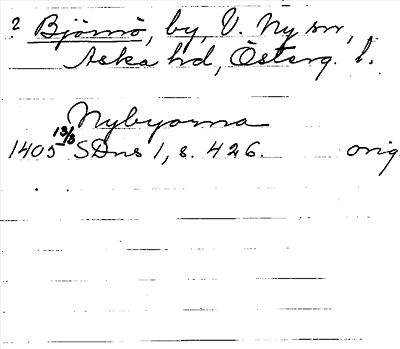 ? Björnö, by, V. Ny sn,
Aska hd, Österg. l.
Nybyorna
1405 13/3 SDns 1, s. 426. orig